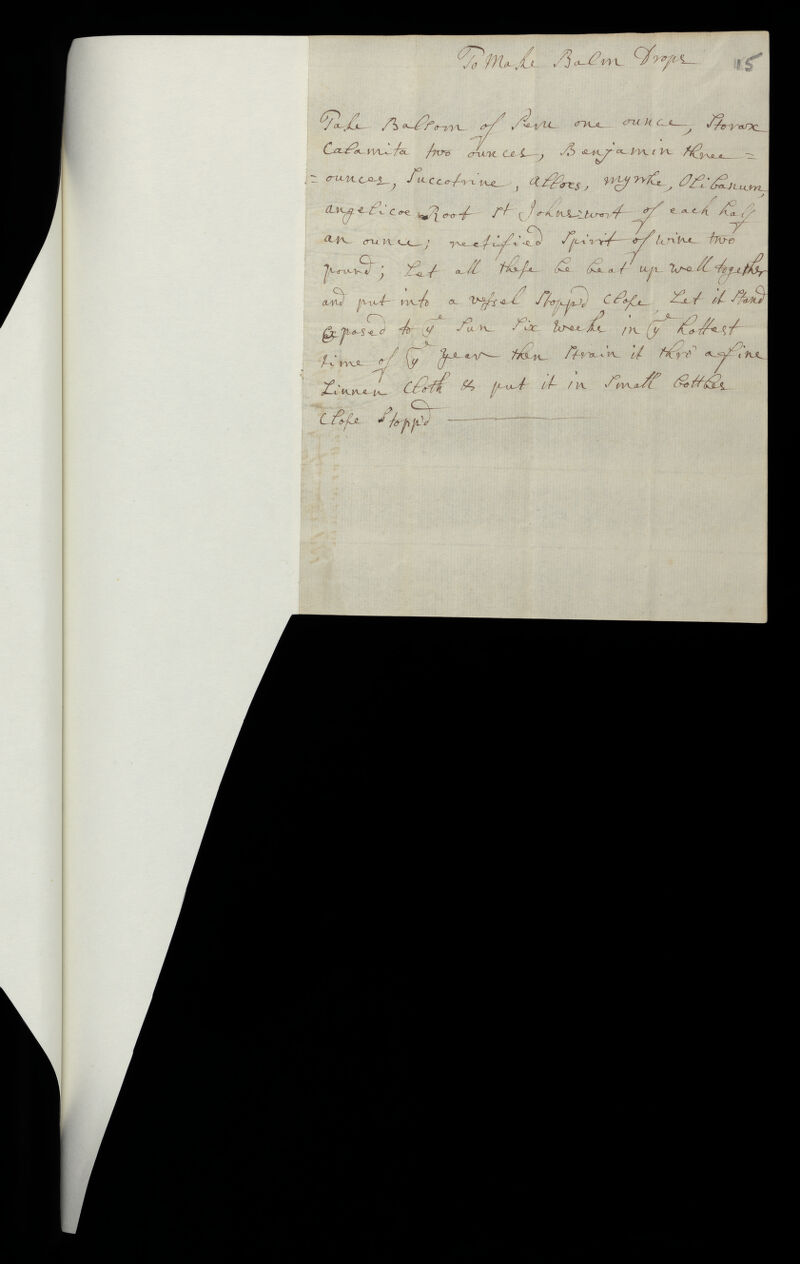 To Make Balm Drops
15
Take Balsom of Peru one ounce, Storax
Calamita two ounces, Benjamin three =
= ounces, Succotrine, alloes, myrrhe, Olibanum,
angelicoe Root St Johns=wort of each half
an ounce; rectified Spirit of wine two
pound; Let all these be beat up well together
and put into a vessel Stopp'd Close, Let it Stand
Exposed to ye Sun Six weeks in ye hottest
time of ye year then Strain it thro' a fine
Linnen Cloth & put it in Small bottles
Close Stopp'd